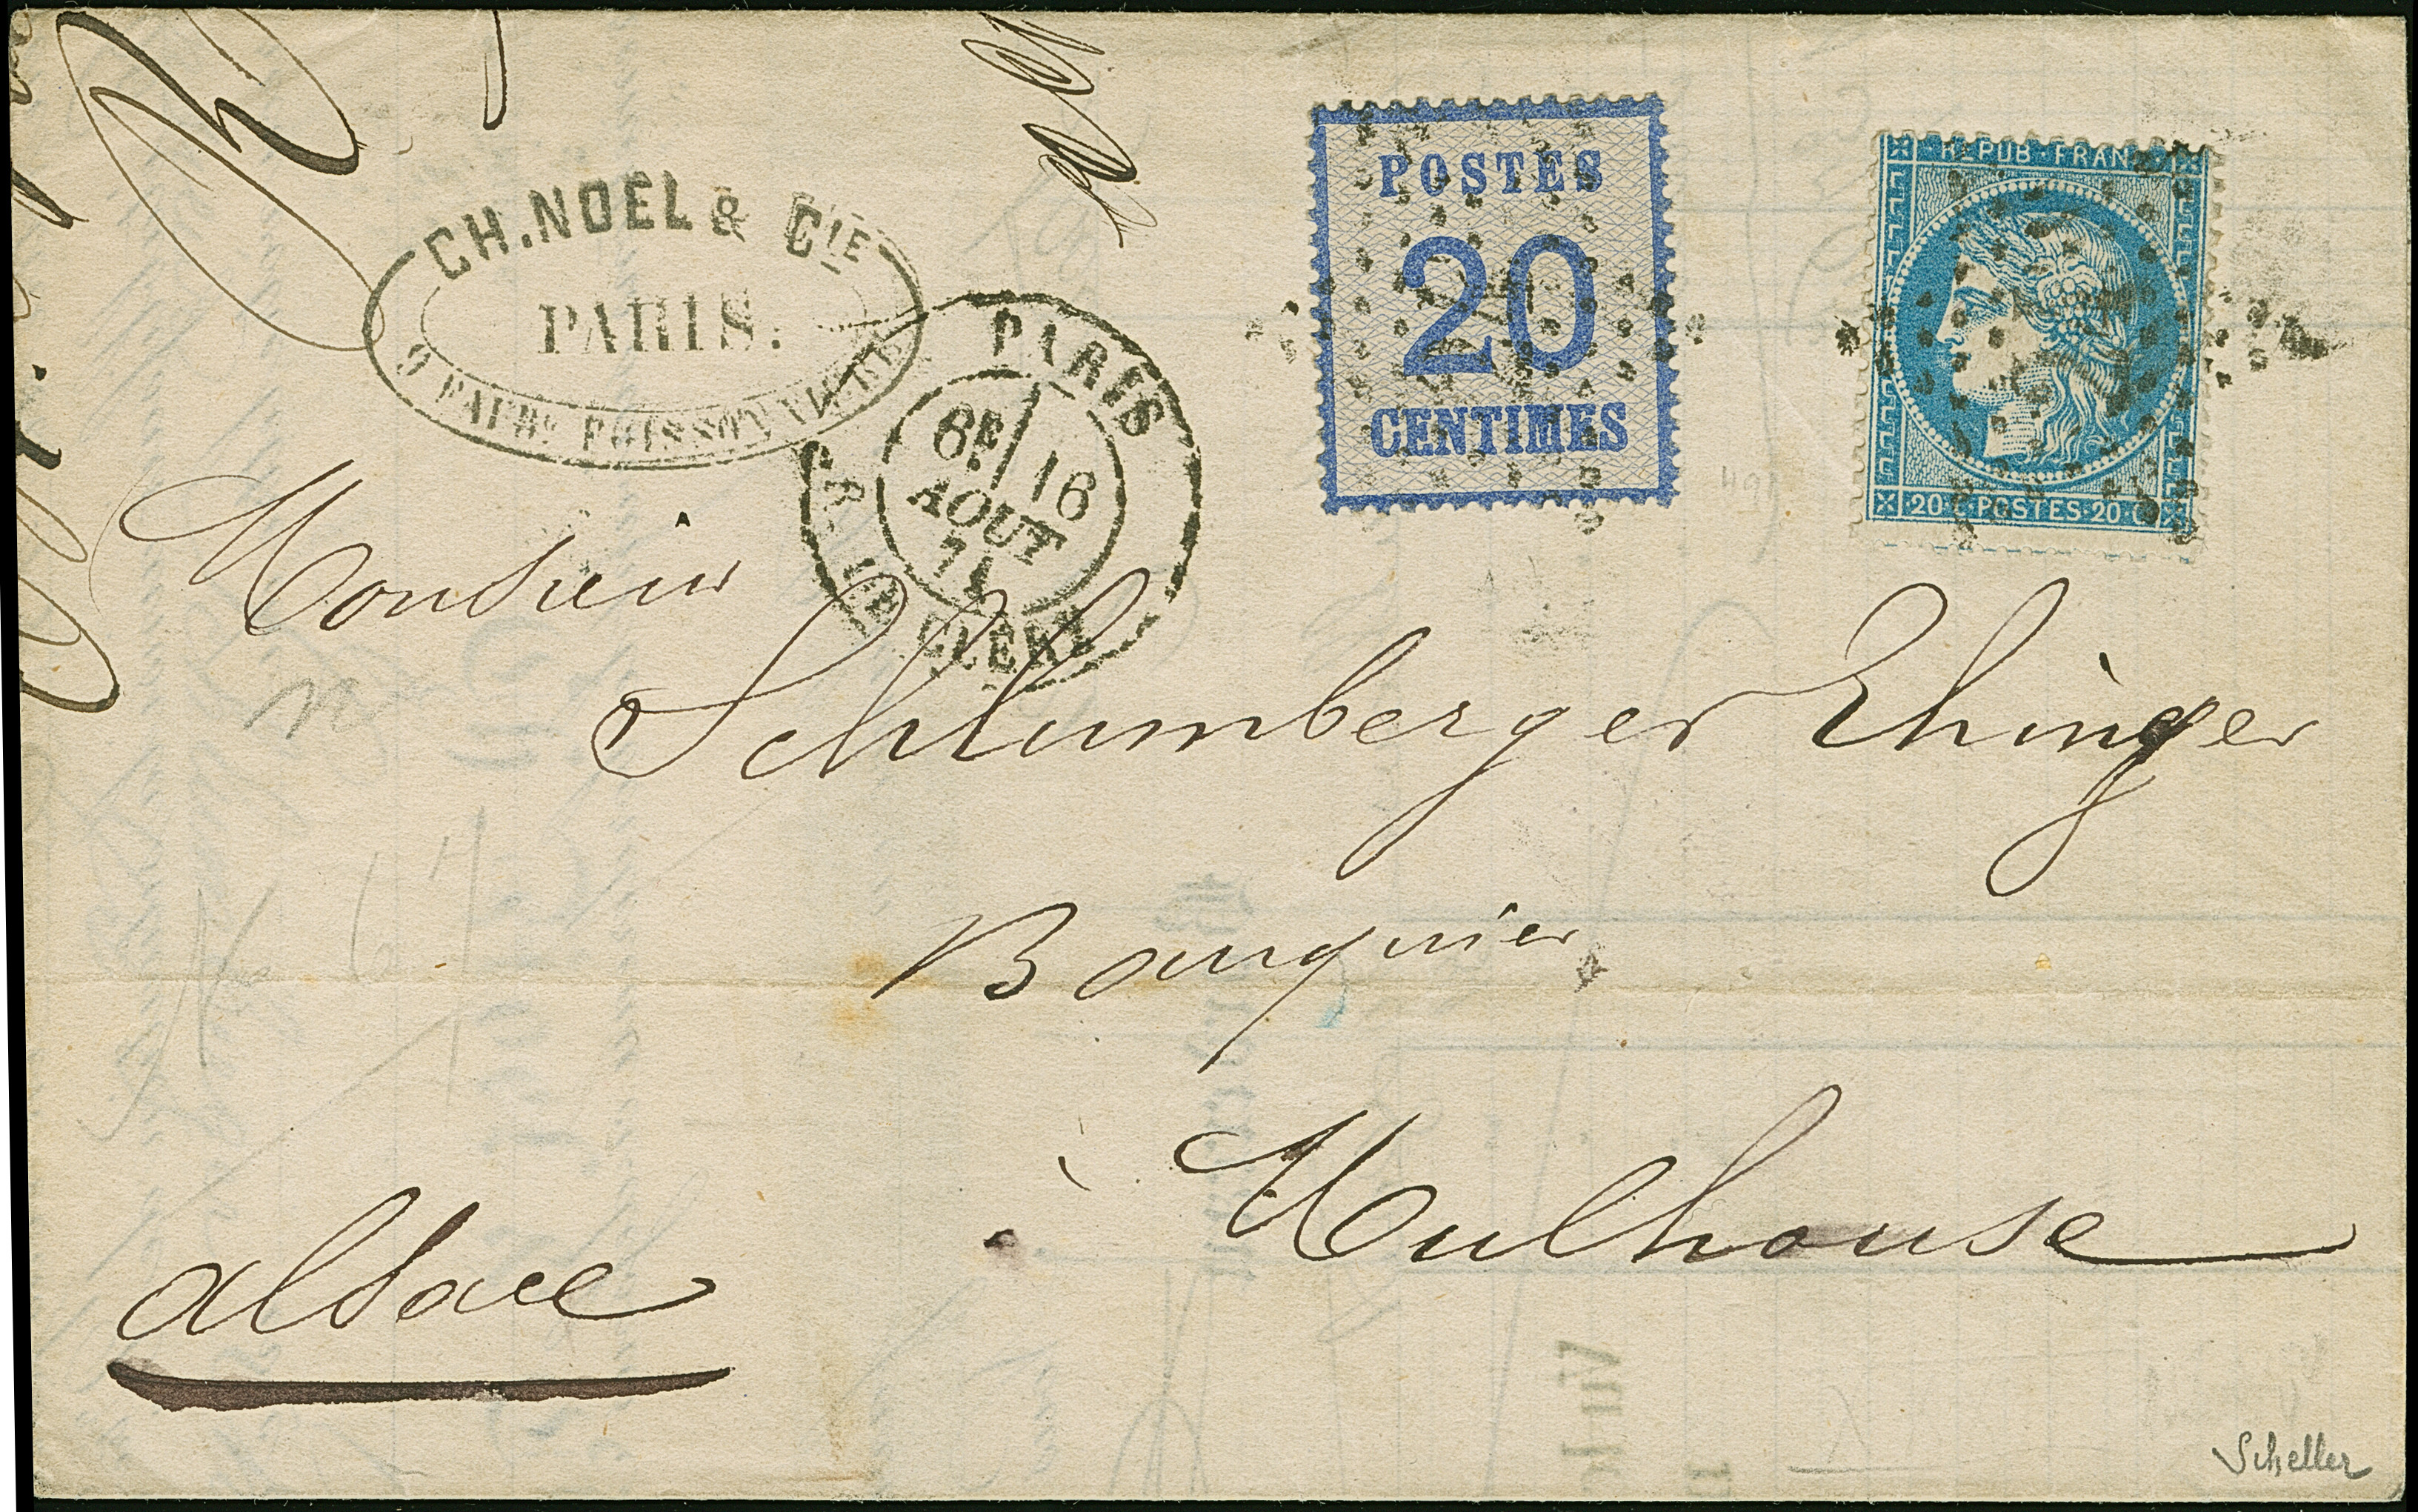 CH. NOEL & CIE
PARIS.
9 FAUBG. POISSONNIERE
PARIS
6E/ 16
AOUT
71
R. DE CLERY
POSTES
20
CENTIMES
REPUB FRANC
20 C POSTES 20 C
Monsieur
Schlumberger Ehinger
Banquier
à Mulhouse
Alsace
Scheller